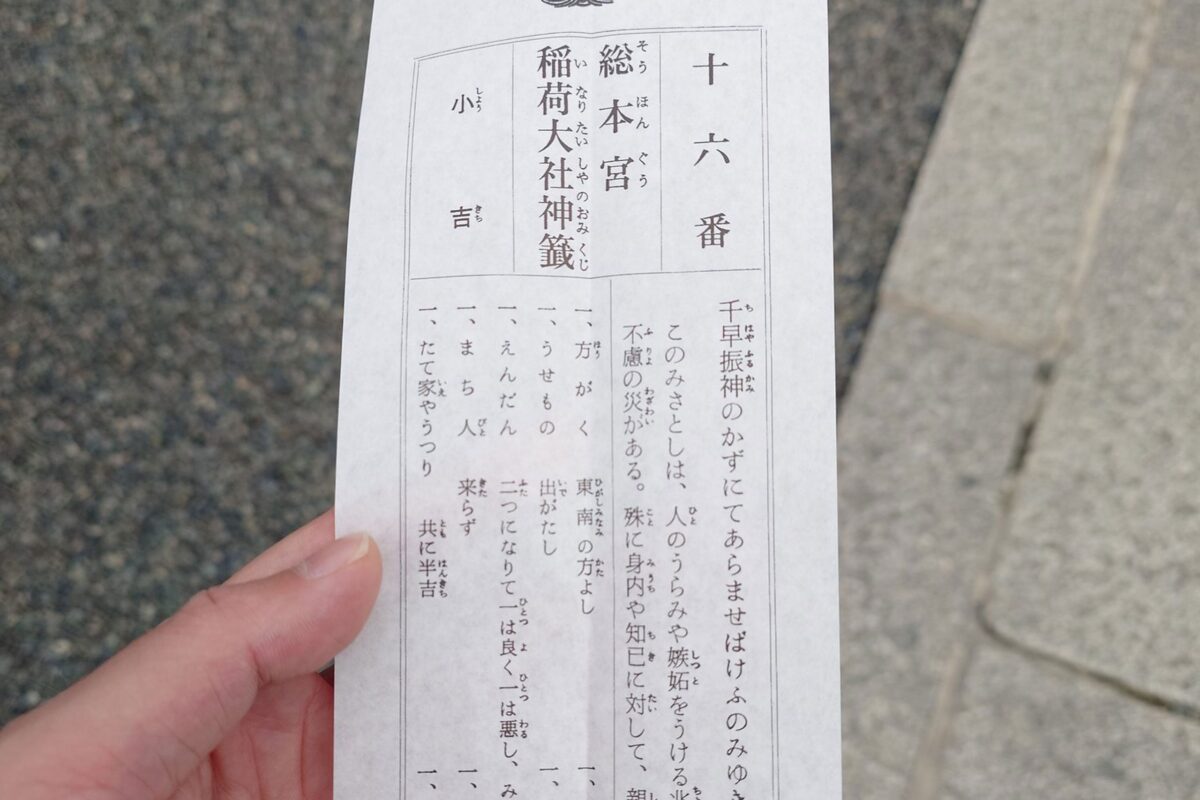 十六番
総本宮
稲荷大社神籤
小吉
千早振神のかずにてあらませばけふのみゆき
このみさとしは、人のうらみや嫉妬をうける
不慮の災がある。殊に身内や知已に対して、親
一、方がく 東南の方よし
一、うせもの 出がたし
一、えんだん 二つになりて一は良く一は悪し、み
一、まち人 来らず
一、たて家やうつり 共に半吉
一、
一、
一、
一、